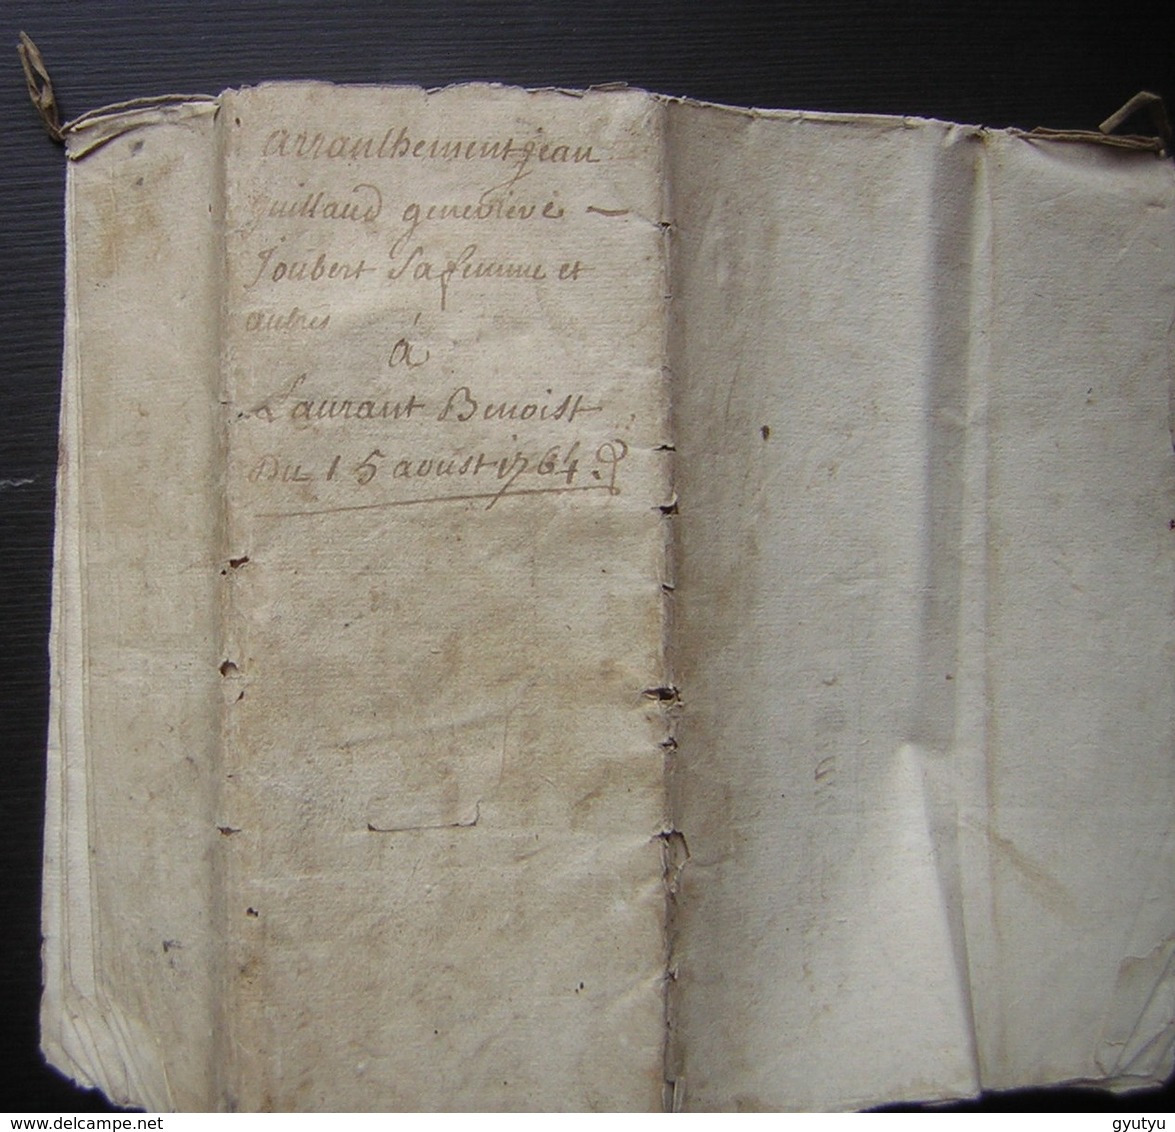 arranthement jean
Guillaud genevieve —
Joubert Sa femme et
autres
à
Laurant Benoist
Du 15 aoust 1764.
www.delcampe.net
gyutyu